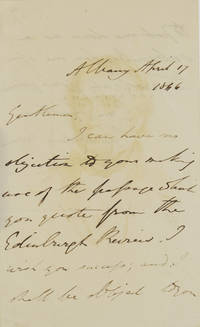 Albany April 17
1846
Gentlemen,
I can have no
objection to your making
use of the passage which
you quote from the
Edinburgh Review. I
wish you success; and I
shall be obliged to you